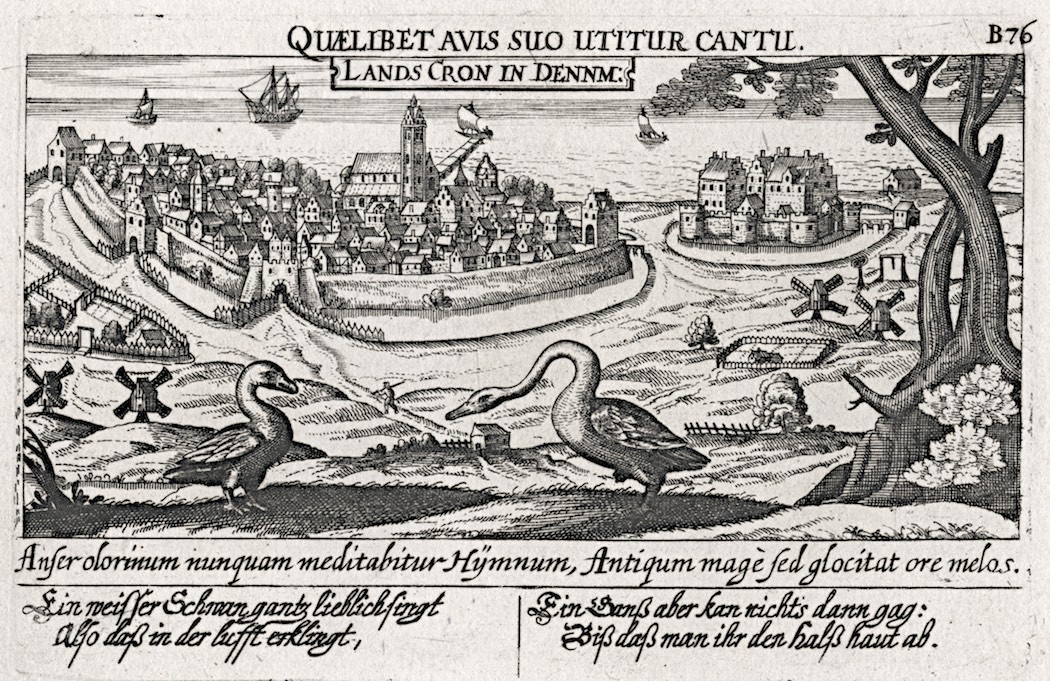 QUÆLIBET AVIS SUO UTITUR CANTU.
B76
LANDS CRON IN DENNM:
Anser olorinum nunquam meditabitur Hÿmnum, Antiqum magè sed glocitat ore melos.
Ein weisser Schwan gantz lieblich singt
Also daß in der lufft erklingt,
Ein Ganß aber kan nichts dann gag:
Biß daß man ihr den Halß haut ab.